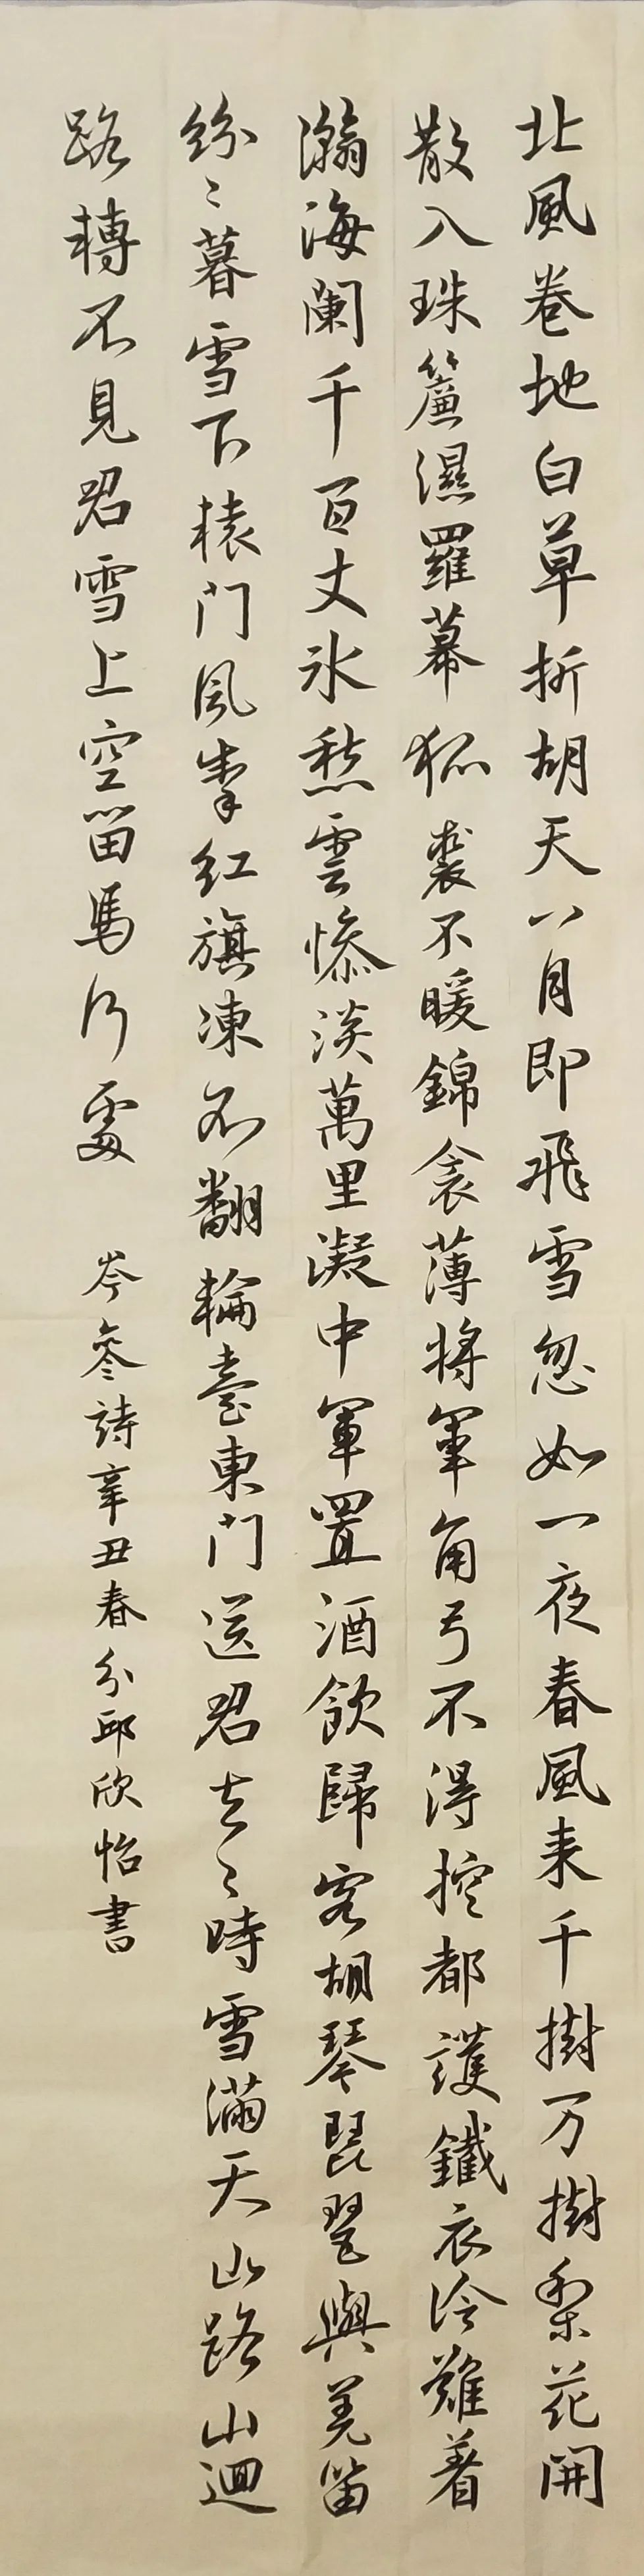 北風卷地白草折胡天八月即飛雪忽如一夜春風来千樹万樹梨花開
散入珠簾濕羅幕狐裘不暖錦衾薄將軍角弓不得控都護鐵衣冷難着
瀚海闌干百丈冰愁雲慘淡萬里凝中軍置酒飲歸客胡琴琵琶與羌笛
紛〻暮雪下轅門風掣紅旗凍不翻輪臺東門送君去〻時雪滿天山路山迴
路轉不見君雪上空留馬行處
岑參詩辛丑春分邱欣怡書